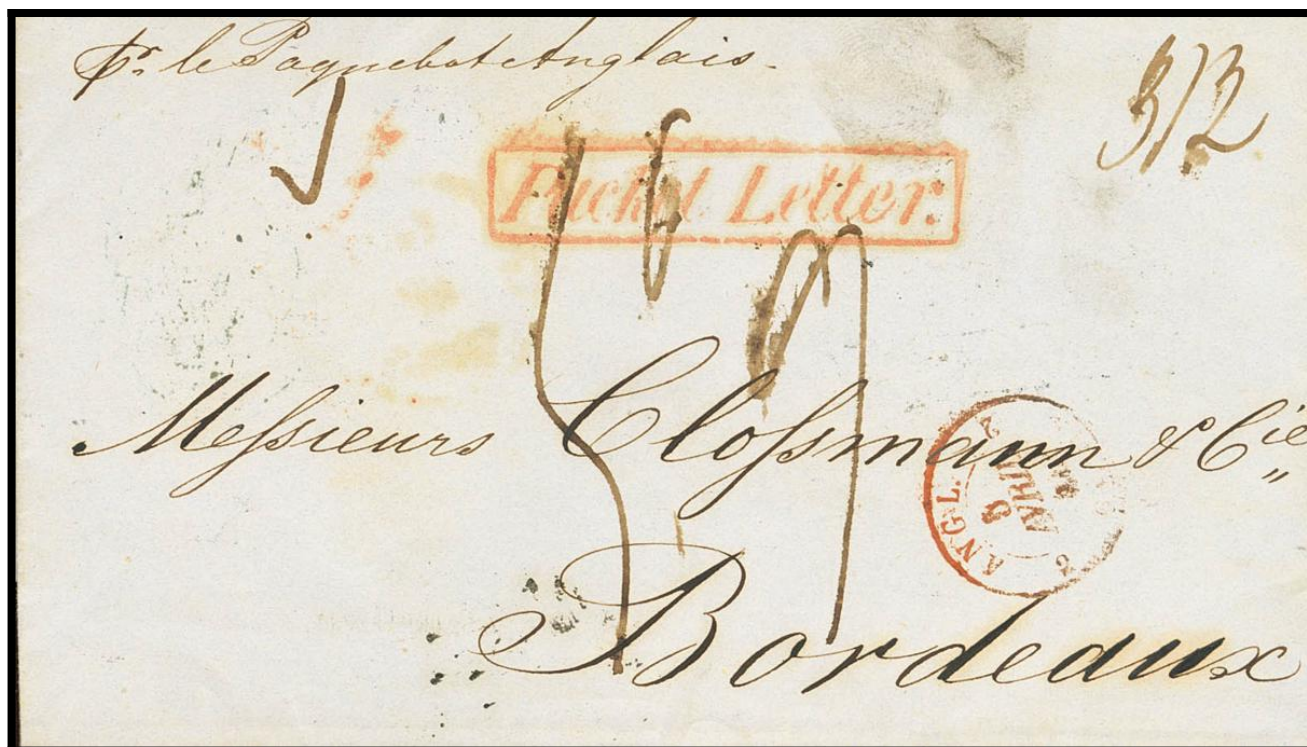 pr. le Paquebot Anglais.
3/2
Packet Letter.
Messieurs Clossmann & Cie
ANGL.
Bordeaux